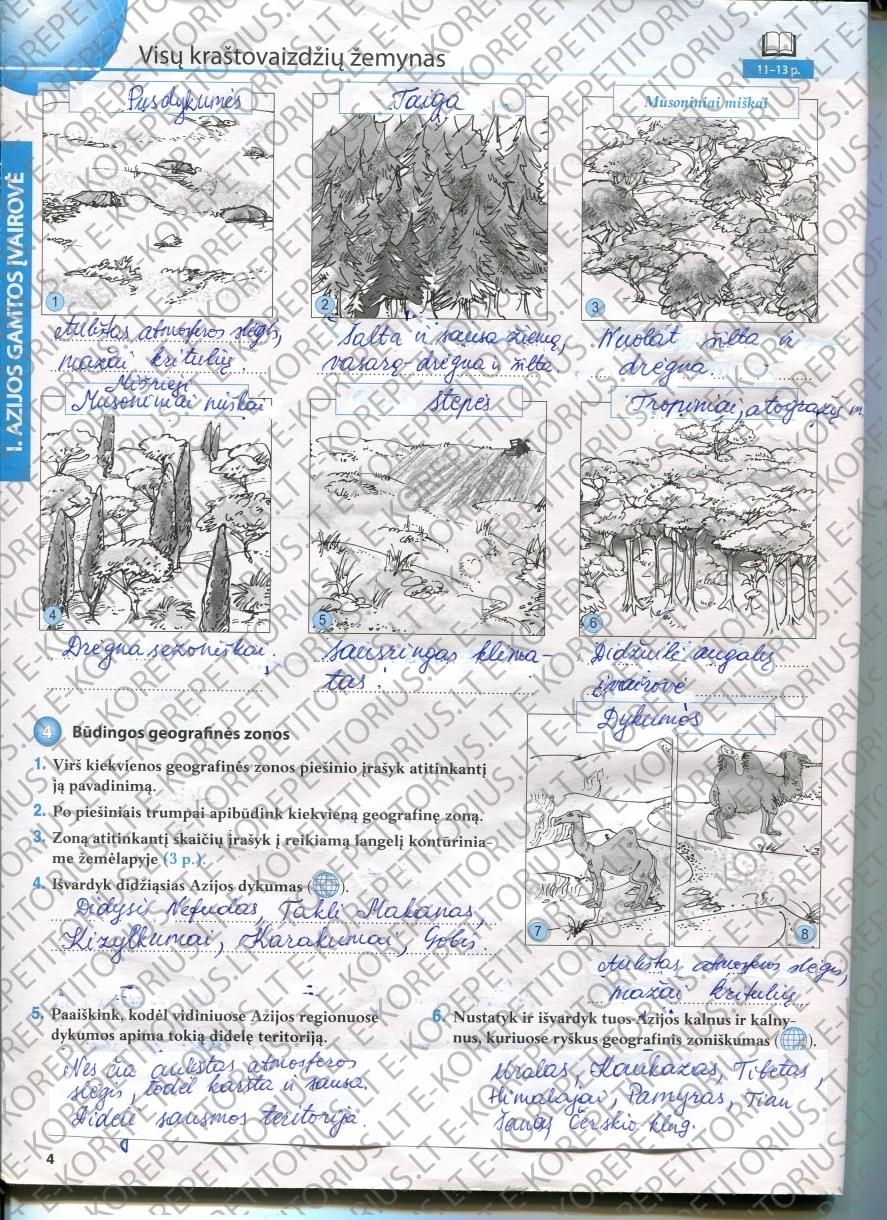 Visų kraštovaizdžių žemynas
11–13 p.
I. AZIJOS GAMTOS ĮVAIROVĖ
Pusdykumės
Taiga
Musoniniai miškai
1
2
3
Aukštas atmosferos slėgis,
mažai kritulių.
Šalta ir sausa žiemą,
vasarą-drėgna ir šilta
Nuolat šilta ir
drėgna.
Mišrieji
Musoniniai miškai
stepės
Tropiniai, atogrąžų m.
4
5
6
Drėgna sezoniškai.
Sausringas klima-
tas.
Didžiulė augalų
įvairovė
4 Būdingos geografinės zonos
1. Virš kiekvienos geografinės zonos piešinio įrašyk atitinkantį
ją pavadinimą.
2. Po piešiniais trumpai apibūdink kiekvieną geografinę zoną.
3. Zoną atitinkantį skaičių įrašyk į reikiamą langelį kontūrinia-
me žemėlapyje (3 p.).
4. Išvardyk didžiąsias Azijos dykumas ( ).
Didysis Nefudas, Takli Makanas,
Kizylkumai, Karakumai, Gobis
Dykumos
7
8
Aukštas atmosferos slėgis,
mažai kritulių
5. Paaiškink, kodėl vidiniuose Azijos regionuose
dykumos apima tokią didelę teritoriją.
Nes čia aukštas atmosferos
slėgis, todėl karšta ir sausa.
Didelė sausmos teritorija.
6. Nustatyk ir išvardyk tuos Azijos kalnus ir kalny-
nus, kuriuose ryškus geografinis zoniškumas ( ).
Uralas, Kaukazas, Tibetas,
Himalajai, Pamyras, Tian
Šanas Čerskio klng.
4
E-KOREPETITORIUS.LT